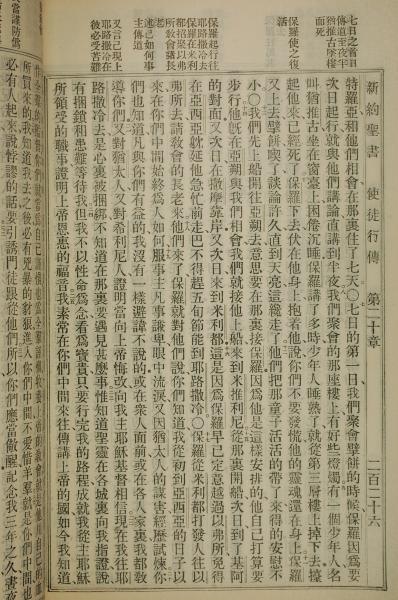 新約聖書 使徒行傳 第二十章 二百二十六
七日之首日
傳道至夜半
猶推古墜樓
而死
保羅使之復
活
保羅起行往
耶路撒冷去
保羅在米利
都招聚以弗
所教會諸長
老
述己如何事
主傳道
又言己現上
耶路撒冷在
彼必受苦難
特羅亞和他們相會在那裏住了七天〇七日的第一日我們聚會擘餅的時候保羅因爲要
次日起行就與他們講論直講到半夜我們聚會的那座樓上有好些燈燭有一個少年人名
叫猶推古坐在窗臺上困倦沉睡保羅講了多時少年人睡熟了就從第三層樓上掉下去擡
起他來已經死了保羅下去伏在他身上抱着他說你們不要發慌他的靈魂還在身上保羅
又上去擘餅喫了談論許久直到天亮這纔走了他們把那童子活活的帶了來得的安慰不
小〇我們先上船開往亞朔去意思要在那裏接保羅因爲他是這樣安排的他自己打算要
步行他旣在亞朔與我們相會我們就接他上船來到米推利尼從那裏開船次日到了基阿
的對面又次日在撒摩靠岸又次日來到米利都這是因爲保羅早已定意越過以弗所免得
在亞西亞躭延他急忙前走巴不得趕五旬節能到耶路撒冷〇保羅從米利都打發人往以
弗所去請敎會的長老來他們來了保羅就對他們說你們知道我從初到亞西亞的日子以
來在你們中間始終爲人如何服事主凡事謙卑眼中流淚又因猶太人的謀害經歷試煉你
們也知道凡與你們有益的我沒有一樣避諱不說的或在衆人面前或在各人家裏我都敎
導你們又對猶太人又對希利尼人證明當向上帝悔改向我主耶穌基督相信現在我往耶
路撒冷去是心裏被捆綁不知道在那裏要遇見甚麼事惟知道聖靈在各城裏向我指證說
有捆鎖和患難等待我但我不以性命爲念看爲寶貴只要行完我的路程成就我從主耶穌
所領受的職事證明上帝恩惠的福音我素常在你們中間來往傳講上帝的國如今我知道
所買來的我知道我去之後必有兇暴的豺狼進入你們中間不愛惜羊羣就是你們中間也
必有人起來說悖謬的話要引誘門徒跟從他們所以你們應當儆醒記念我三年之久晝夜